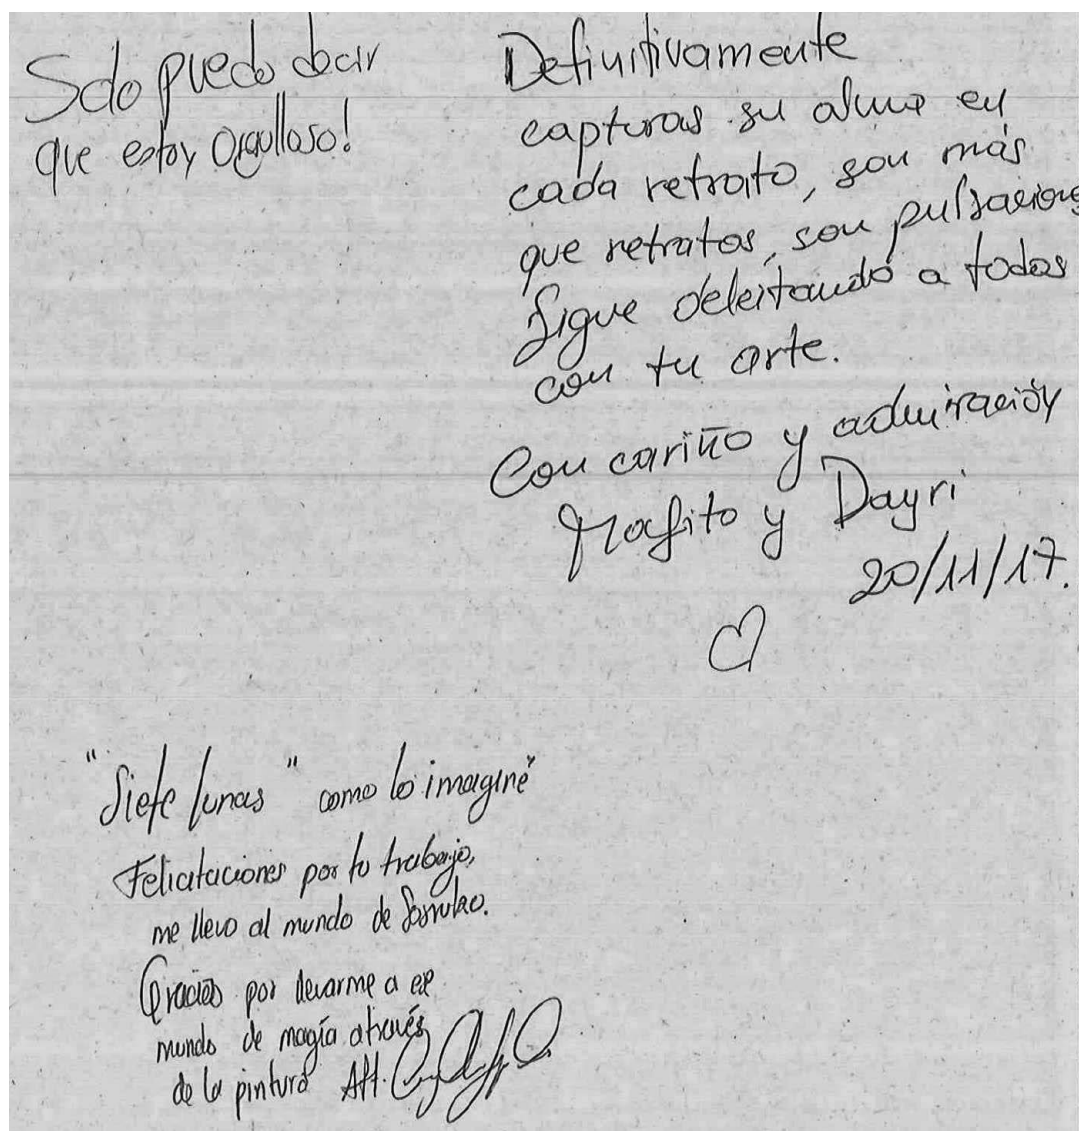 Solo puedo decir
que estoy Orgulloso!
Definitivamente
capturas su alma en
cada retrato, son más
que retratos, son pulsaciones
Sigue deleitando a todos
con tu arte.
Con cariño y admiración
y Dayri
20/11/17.
"Siete lunas" como lo imaginé
Felicitaciones por tu trabajo,
me llevo al mundo de
Gracias por llevarme a ese
mundo de magía através
de la pintura Att.